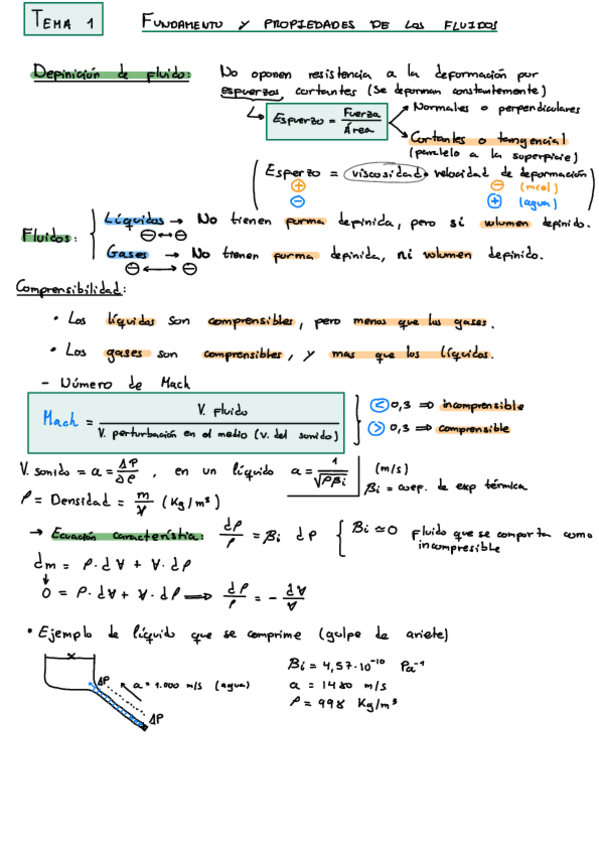 TEMA 1 FUNDAMENTO Y PROPIEDADES DE LOS FLUIDOS
Definición de fluido: No oponen resistencia a la deformación por
esfuerzos cortantes (Se deforman constantemente)
Esfuerzo = Fuerza / Área
Normales o perpendiculares
Cortantes o tangencial
(paralelo a la superficie)
(Esfuerzo = viscosidad · velocidad de deformación)
+ - (miel)
- + (agua)
Fluidos: Líquidos → No tienen forma definida, pero sí volumen definido.
⊖↔⊖
Gases → No tienen forma definida, ni volumen definido.
⊖⟷⊖
Comprensibilidad:
• Los líquidos son comprensibles, pero menos que los gases.
• Los gases son comprensibles, y mas que los líquidos.
- Número de Mach
Mach = V. Fluido / V. perturbación en el medio (v. del sonido)
< 0,3 ⇒ incomprensible
> 0,3 ⇒ comprensible
V. sonido = a = ΔP/Δρ, en un líquido a = 1/√ρβi (m/s)
βi = coef. de exp térmica
ρ = Densidad = m/V (Kg/m³)
→ Ecuación característica: dρ/ρ = βi dP { βi ≃ 0 Fluido que se comporta como
incompresible
dm = ρ·dV + V·dρ
0 = ρ·dV + V·dρ ⟹ dρ/ρ = - dV/V
• Ejemplo de líquido que se comprime (golpe de ariete)
ΔP
a = 1.000 m/s (agua)
ΔP
βi = 4,57·10⁻¹⁰ Pa⁻¹
a = 1480 m/s
ρ = 998 Kg/m³